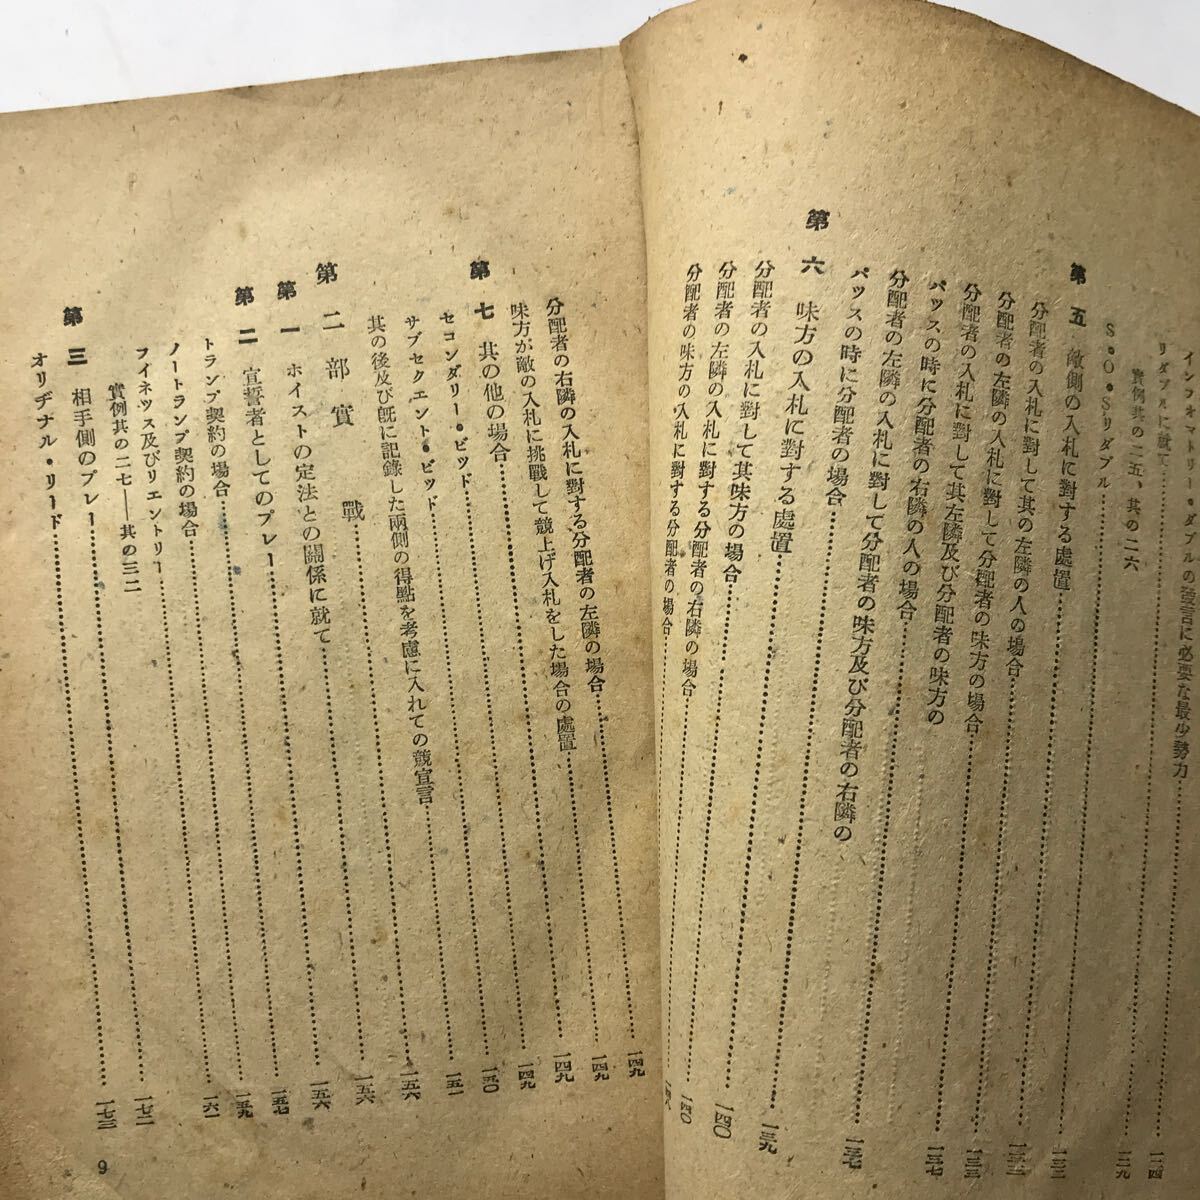 インフオマトリー・ダブルの發言に必要な最少勢力……一二四
リダブルに就て……
S・O・Sリダブル……一二九
實例其の二五、其の二六
第五 敵側の入札に對する處置……一三三
分配者の入札に對して其の左隣の人の場合……一三三
分配者の左隣の入札に對して分配者の味方の場合……一三三
分配者の入札に對して其左隣及び分配者の味方の
パツスの時に分配者の右隣の人の場合……一三七
分配者の左隣の入札に對して分配者の味方及び分配者の右隣の
パツスの時に分配者の場合……一三七
第六 味方の入札に對する處置……一三九
分配者の入札に對して其味方の場合……一四〇
分配者の左隣の入札に對する分配者の右隣の場合……一四〇
分配者の味方の入札に對する分配者の場合……一四八
分配者の右隣の入札に對する分配者の左隣の場合……一四九
味方が敵の入札に挑戰して競上げ入札をした場合の處置……一四九
第七 其の他の場合……一四九
セコンダリー・ビッド……一五〇
サブセクエント・ビッド……一五一
其の後及び旣に記錄した兩側の得點を考慮に入れての競宣言……一五六
第二部 實戰……一五六
第一 ホイストの定法との關係に就て……一五六
第二 宣誓者としてのプレー……一五七
トランプ契約の場合……一五九
ノートランプ契約の場合……一六一
フイネツス及びリエントリー……一七二
實例其の二七—其の三二
第三 相手側のプレー……一七三
オリヂナル・リード……
9